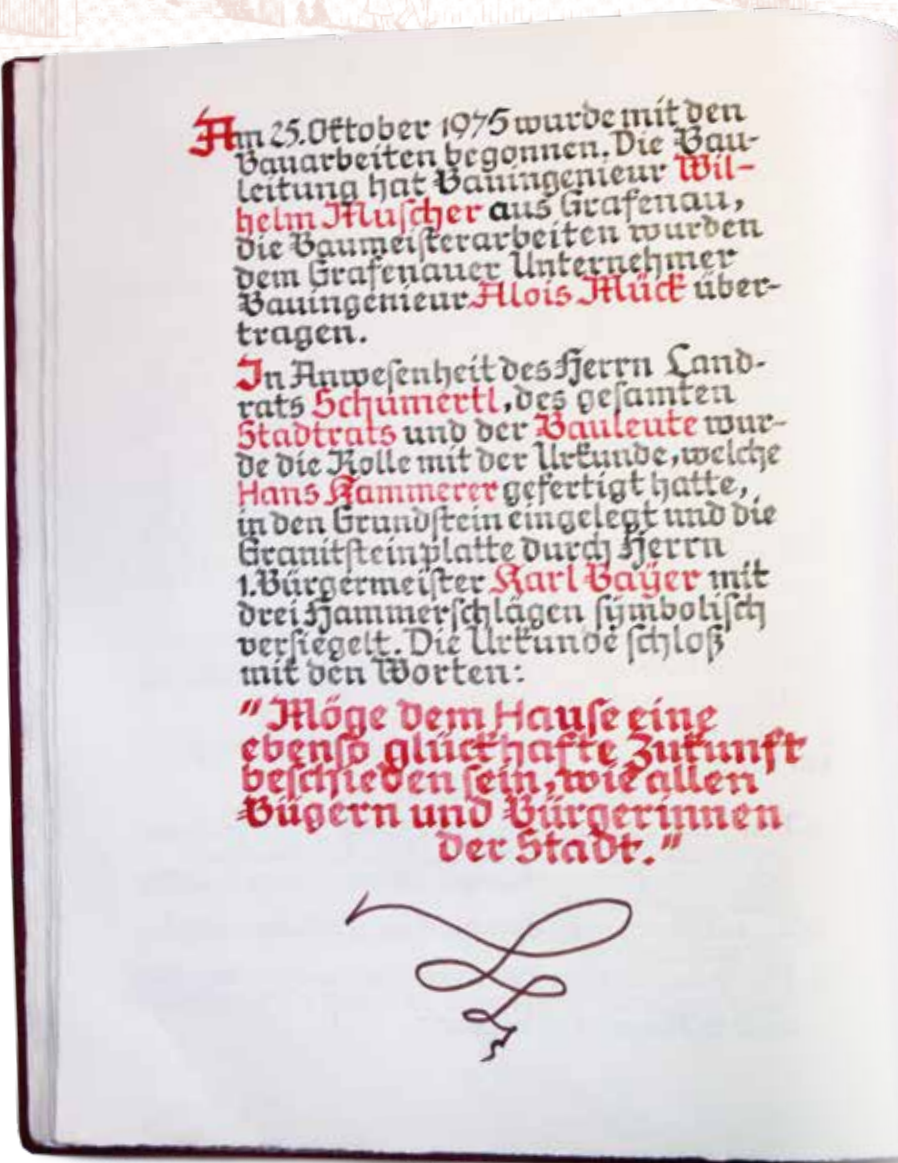 Am 25.Oktober 1975 wurde mit den
Bauarbeiten begonnen. Die Bau-
leitung hat Bauingenieur Wil-
helm Muſcher aus Grafenau,
die Baumeiſterarbeiten wurden
dem Grafenauer Unternehmer
Bauingenieur Alois Mück über-
tragen.
In Anweſenheit des Herrn Land-
rats Schumertl, des geſamten
Stadtrats und der Bauleute wur-
de die Rolle mit der Urkunde, welche
Hans Kammerer gefertigt hatte,
in den Grundſtein eingelegt und die
Granitſteinplatte durch Herrn
1.Bürgermeiſter Karl Bayer mit
drei Hammerſchlägen ſymboliſch
verſiegelt. Die Urkunde ſchloß
mit den Worten:
"Möge dem Hauſe eine
ebenſo glückhafte Zukunft
beſchieden ſein, wie allen
Bügern und Bürgerinnen
der Stadt."